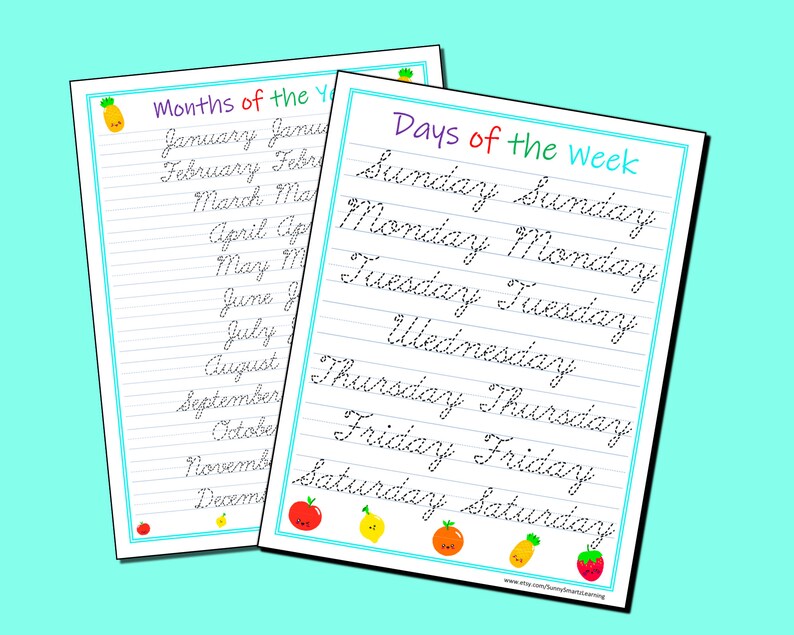 Months of the
January
February
March
April
May
June
July
August
September
October
Days of the Week
Sunday Sunday
Monday Monday
Tuesday Tuesday
Wednesday
Thursday Thursday
Friday Friday
Saturday Saturday
www.etsy.com/SunnySmartzLearning